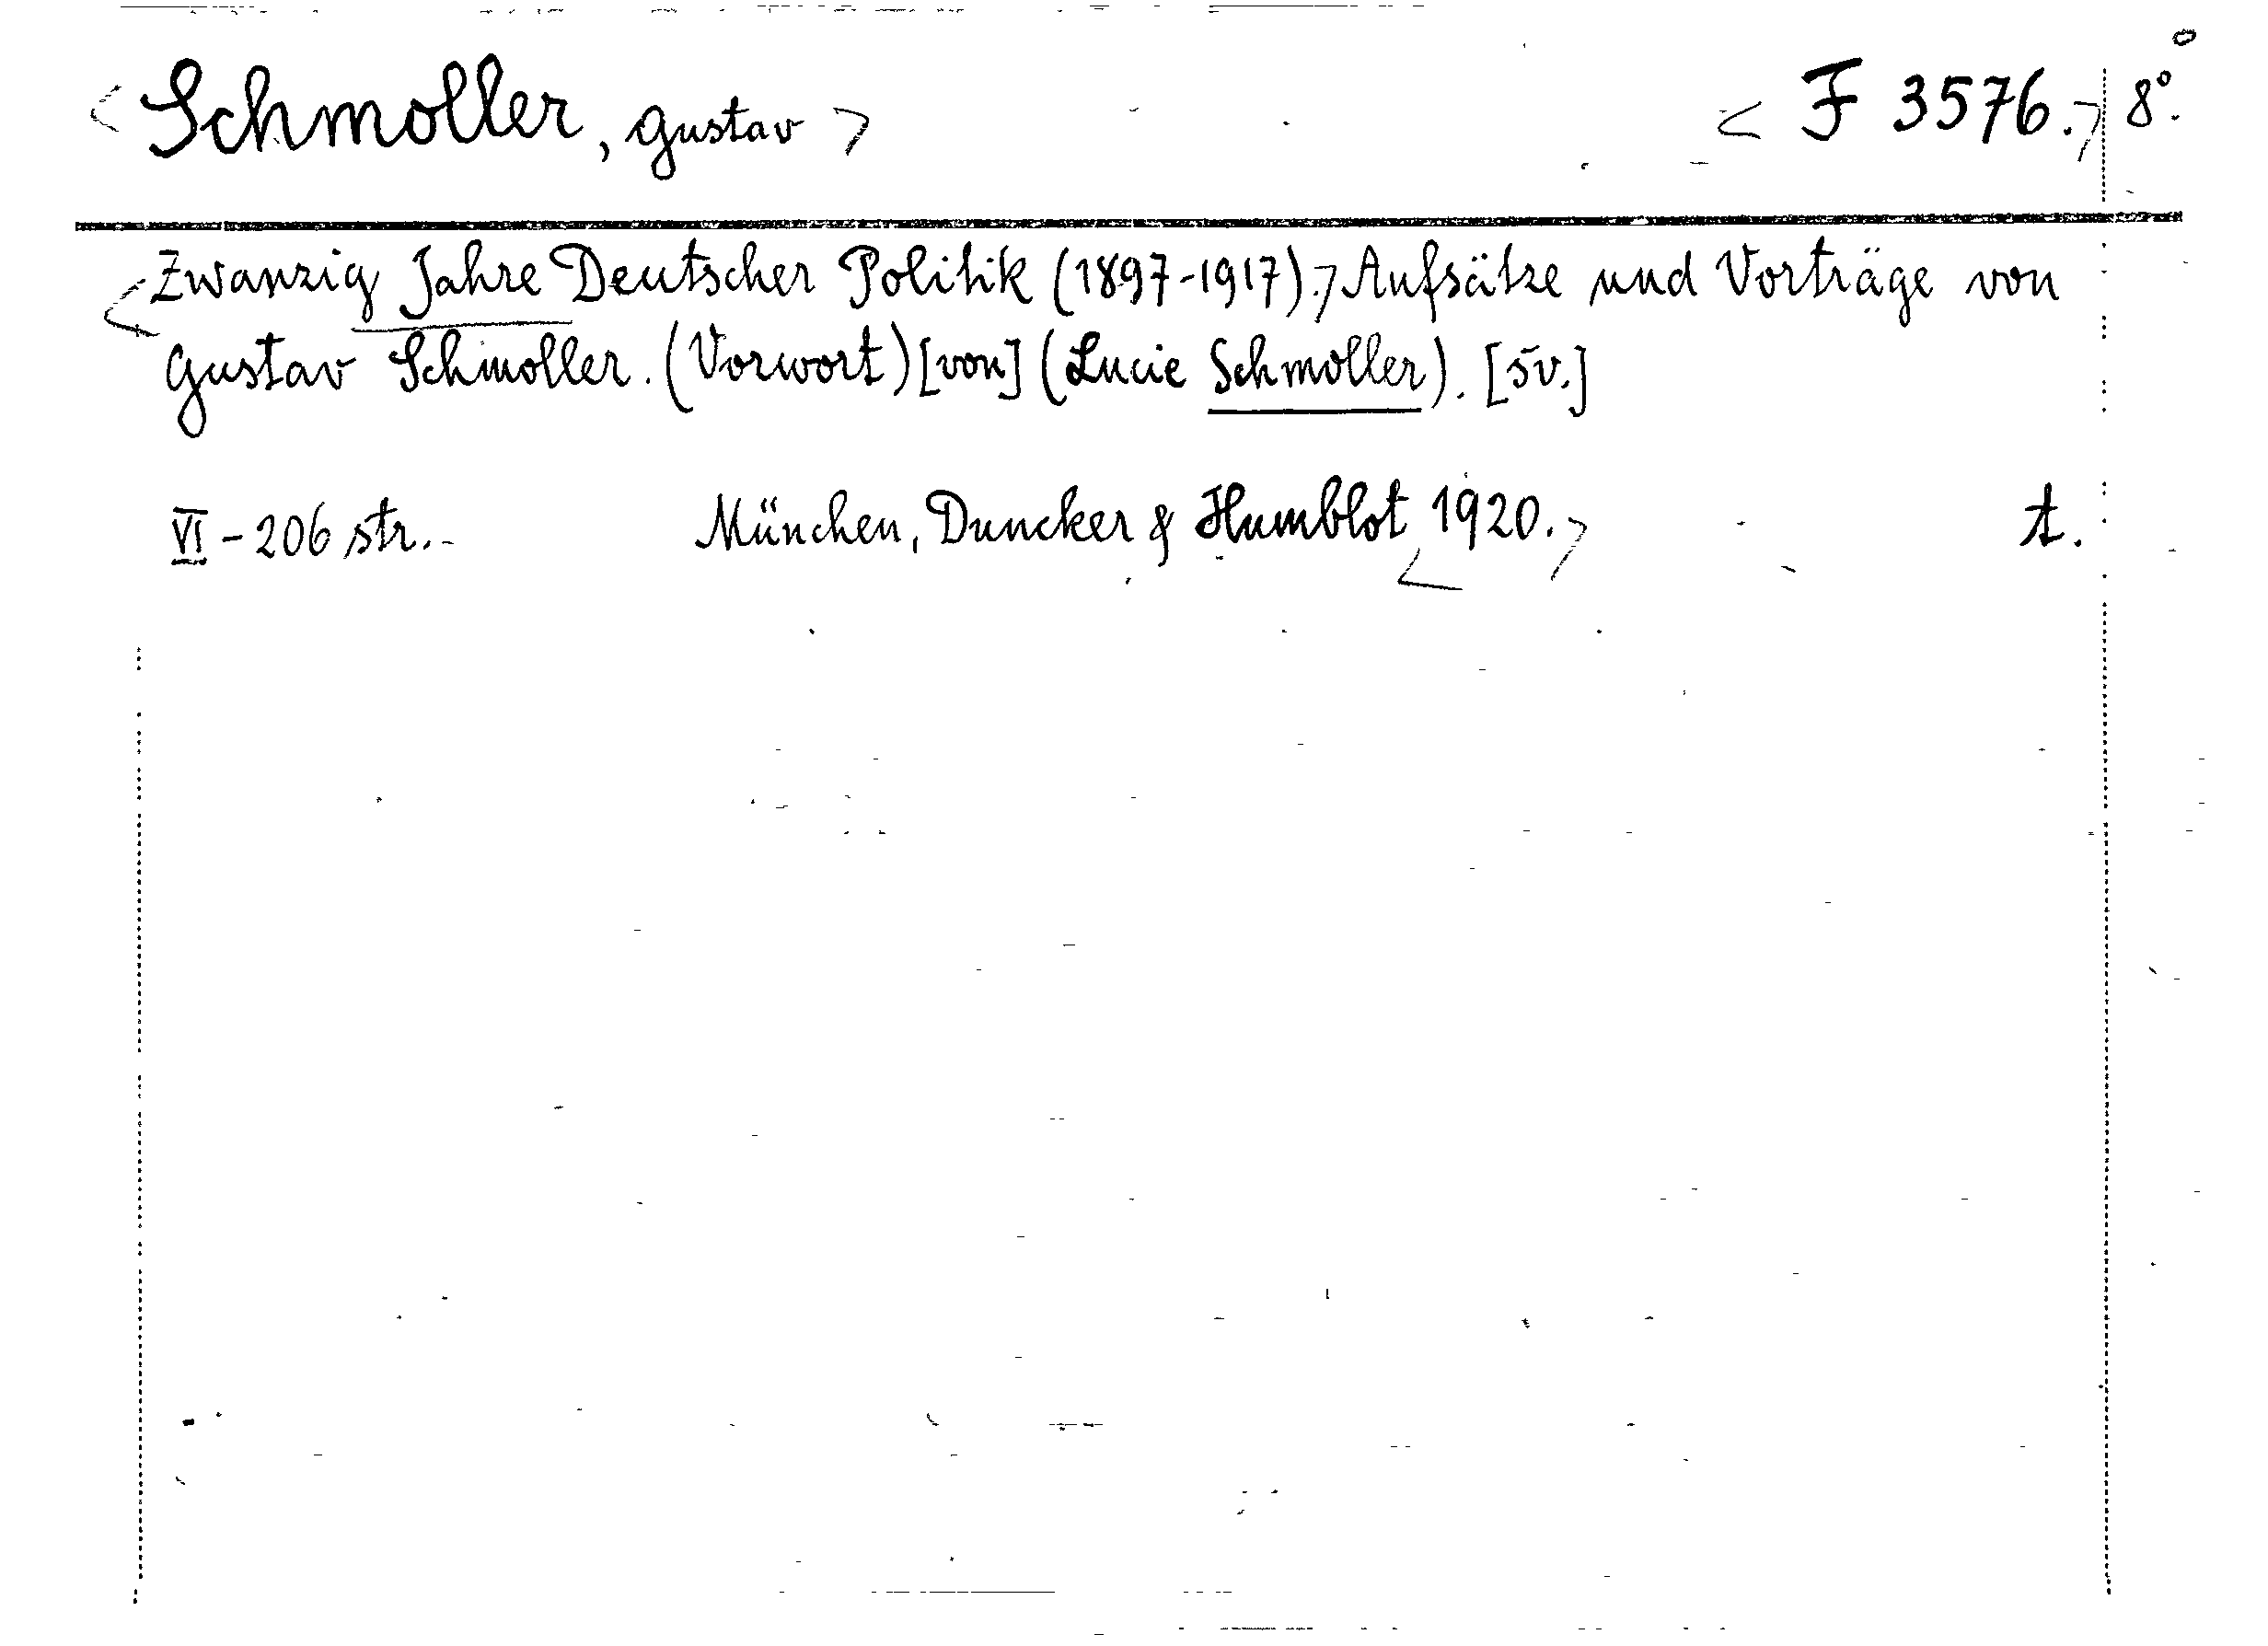 <Schmoller, Gustav> <F 3576.> 8°.
<Zwanzig Jahre Deutscher Politik (1897-1917).> Aufsätze und Vorträge von
Gustav Schmoller. (Vorwort) [von] (Lucie Schmoller). [sv.]
VI - 206 str. - München, Duncker & Humblot <1920.> t.